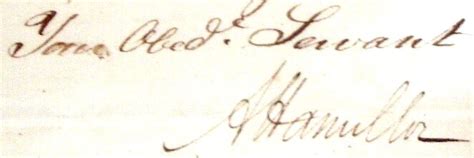 Your Obedr. Servant
AHamilton